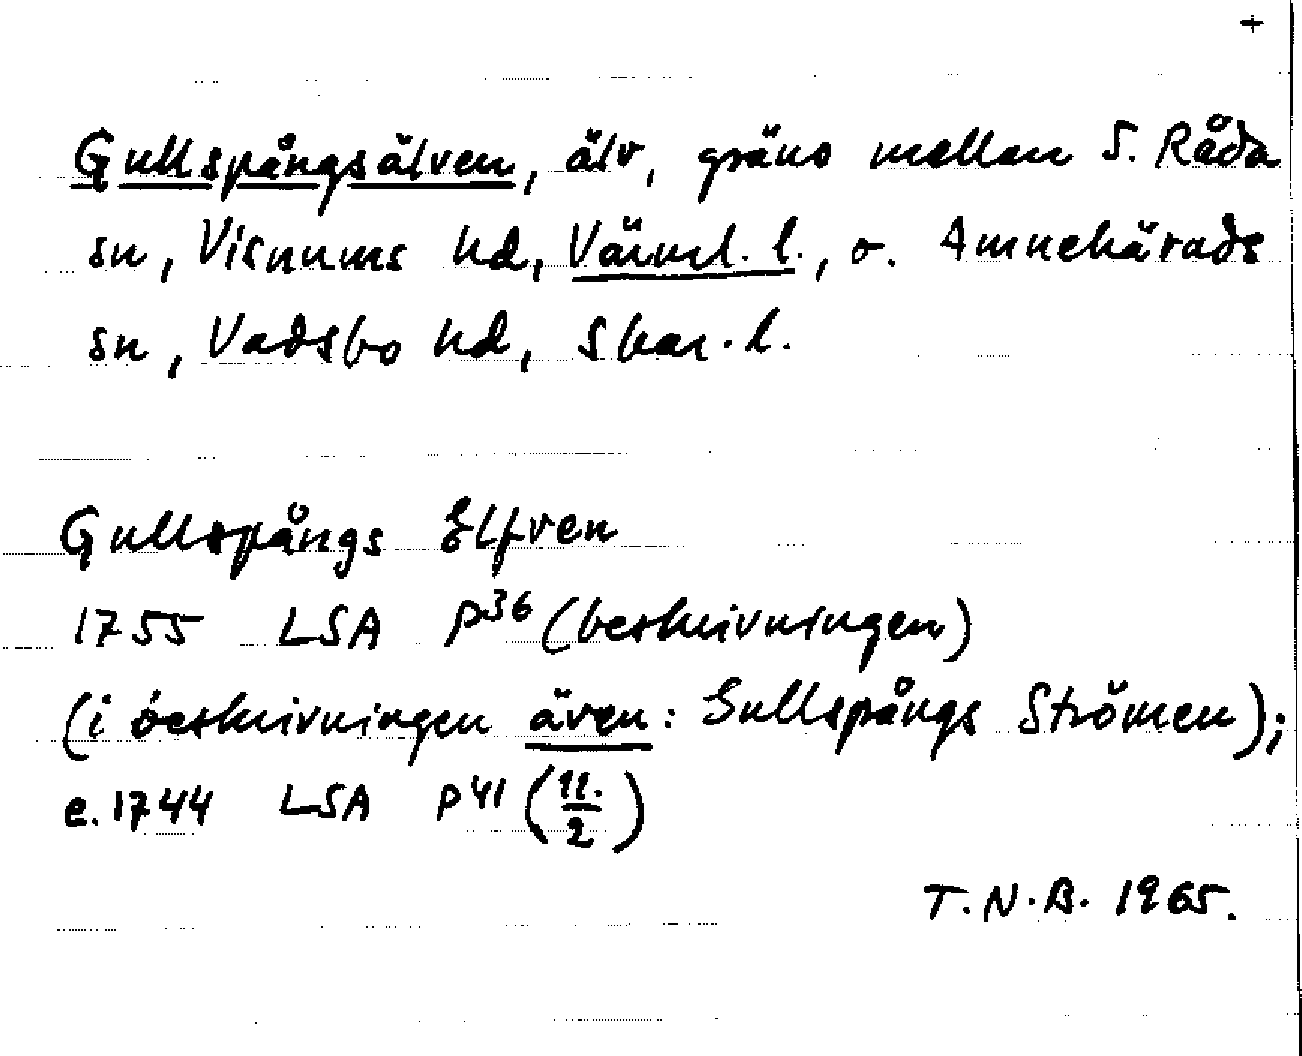 +
Gullspångsälven, älv, gräns mellan S. Råda
sn, Visnums hd, Värml. l., o. Amnehärads
sn, Vadsbo hd, Skar. l.
Gullspångs Elfven
1755 LSA P36 (beskrivningen)
(i beskrivningen även: Gullspångs Strömen);
e. 1744 LSA P41 (11./2)
T.N.B. 1965.